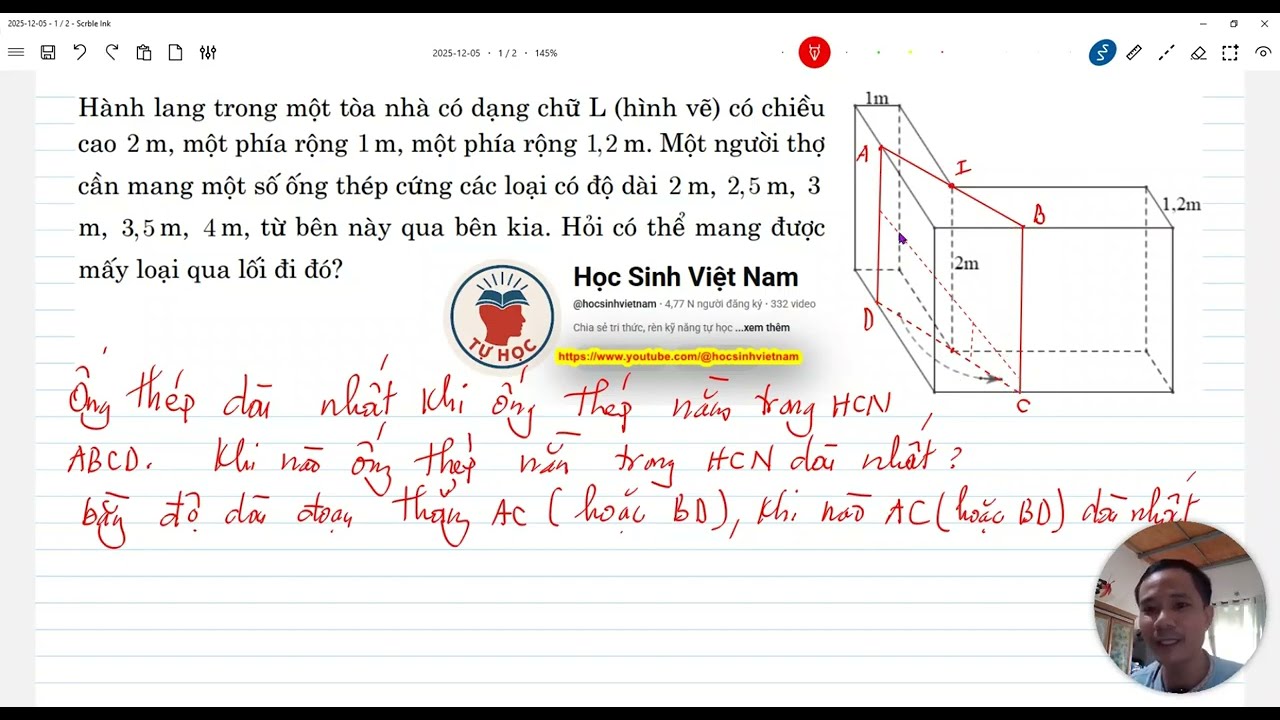 2025-12-05 - 1 / 2 - Scrble Ink
2025-12-05 • 1 / 2 • 145%
Hành lang trong một tòa nhà có dạng chữ L (hình vẽ) có chiều
cao 2 m, một phía rộng 1 m, một phía rộng 1,2 m. Một người thợ
cần mang một số ống thép cứng các loại có độ dài 2 m, 2,5 m, 3
m, 3,5 m, 4 m, từ bên này qua bên kia. Hỏi có thể mang được
mấy loại qua lối đi đó?
1m
A
I
B
1,2m
2m
D
C
TỰ HỌC
Học Sinh Việt Nam
@hocsinhvietnam · 4,77 N người đăng ký · 332 video
Chia sẻ tri thức, rèn kỹ năng tự học ...xem thêm
https://www.youtube.com/@hocsinhvietnam
Ống thép dài nhất khi ống thép nằm trong HCN
ABCD. Khi nào ống thép nằm trong HCN dài nhất?
bằng độ dài đoạn thẳng AC (hoặc BD), khi nào AC (hoặc BD) dài nhất